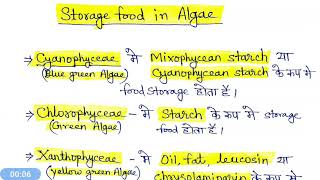 Storage food in Algae
→ Cyanophyceae में Mixophycean starch या
(Blue green Algae) Cyanophycean starch के रूप मे
food storage होता हैं।
→ Chlorophyceae - मे Starch के रूप मे storage
(Green Algae) होता हैं।
→ Xanthophyceae - मे Oil, fat, leucosin या
(yellow green Algae) chrysolaminarin के रूप मे
00:06